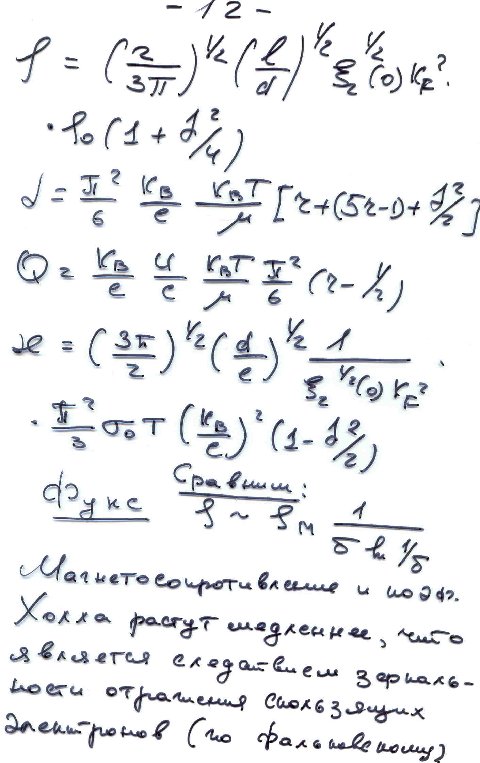 - 12 -
ρ = (2/3π)^1/2 (l/d)^1/2 ξ_2^1/2 (0) K_F^2 ·
· ρ_0 (1 + J^2/4)
α = π^2/6 K_B/e K_BT/μ [r + (5r-1) + J^2/2]
Q = K_B/e u/c K_BT/μ π^2/6 (r - 1/2)
ϰ = (3π/2)^1/2 (d/l)^1/2 1/ξ_2^1/2(0) K_F^2 ·
· π^2/3 σ_0 T (K_B/e)^2 (1 - J^2/2)
Фукс Сравним: ρ ~ ρ_м 1/(δ ln 1/δ)
Магнетосопротивление и поэф.
Холла растут медленнее, что
является следствием зеркаль-
ности отражения скользящих
электронов (по Фальковскому)